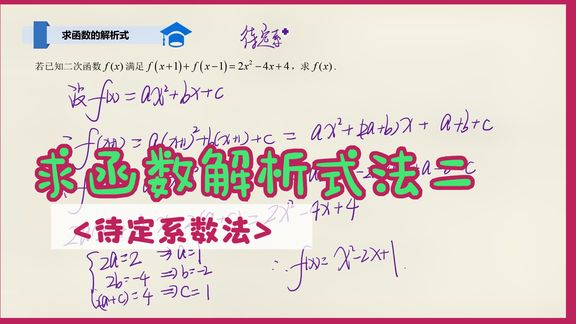 求函数的解析式
待定系
若已知二次函数 f(x) 满足 f(x+1)+f(x-1)=2x²-4x+4，求 f(x).
设 f(x)=ax²+bx+c
∴ f(x+1)=a(x+1)²+b(x+1)+c = ax²+(2a+b)x+a+b+c
求函数解析式法二
=2x²-4x+4
<待定系数法>
2a=2 ⇒ a=1
2b=-4 ⇒ b=-2
2(a+c)=4 ⇒ c=1
∴ f(x)=x²-2x+1.